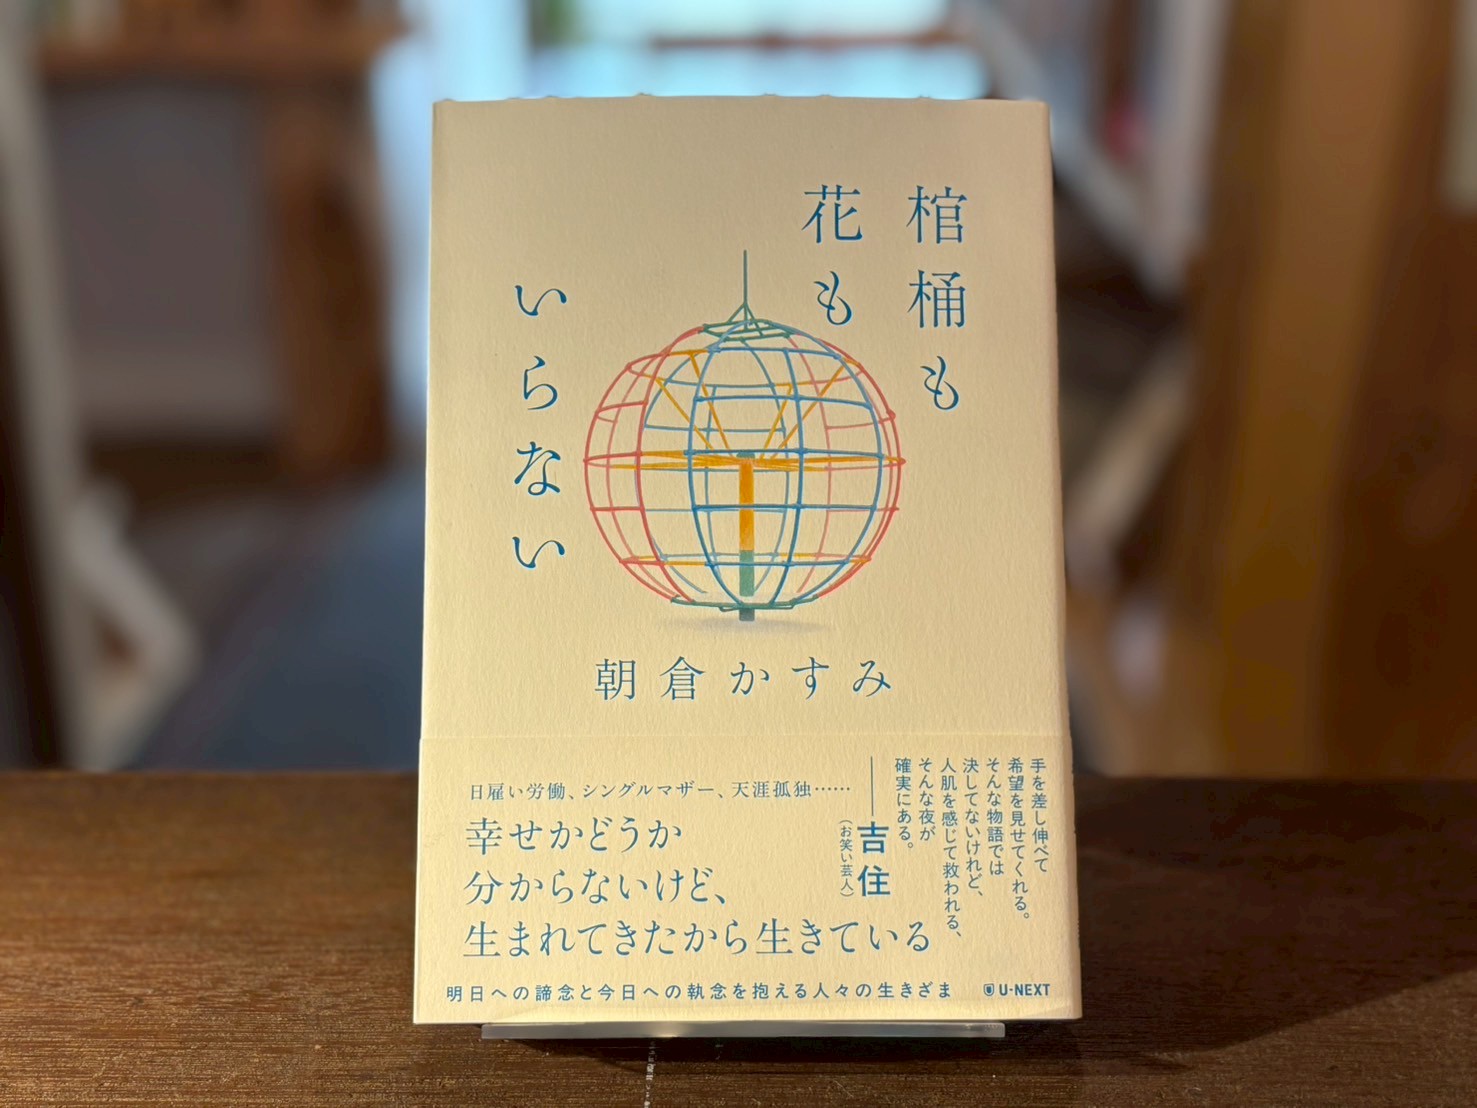 棺桶も
花も
いらない
朝倉かすみ
手を差し伸べて
希望を見せてくれる。
そんな物語では
決してないけれど、
人肌を感じて救われる、
そんな夜が
確実にある。
——吉住
（お笑い芸人）
日雇い労働、シングルマザー、天涯孤独……
幸せかどうか
分からないけど、
生まれてきたから生きている
明日への諦念と今日への執念を抱える人々の生きざま
U-NEXT